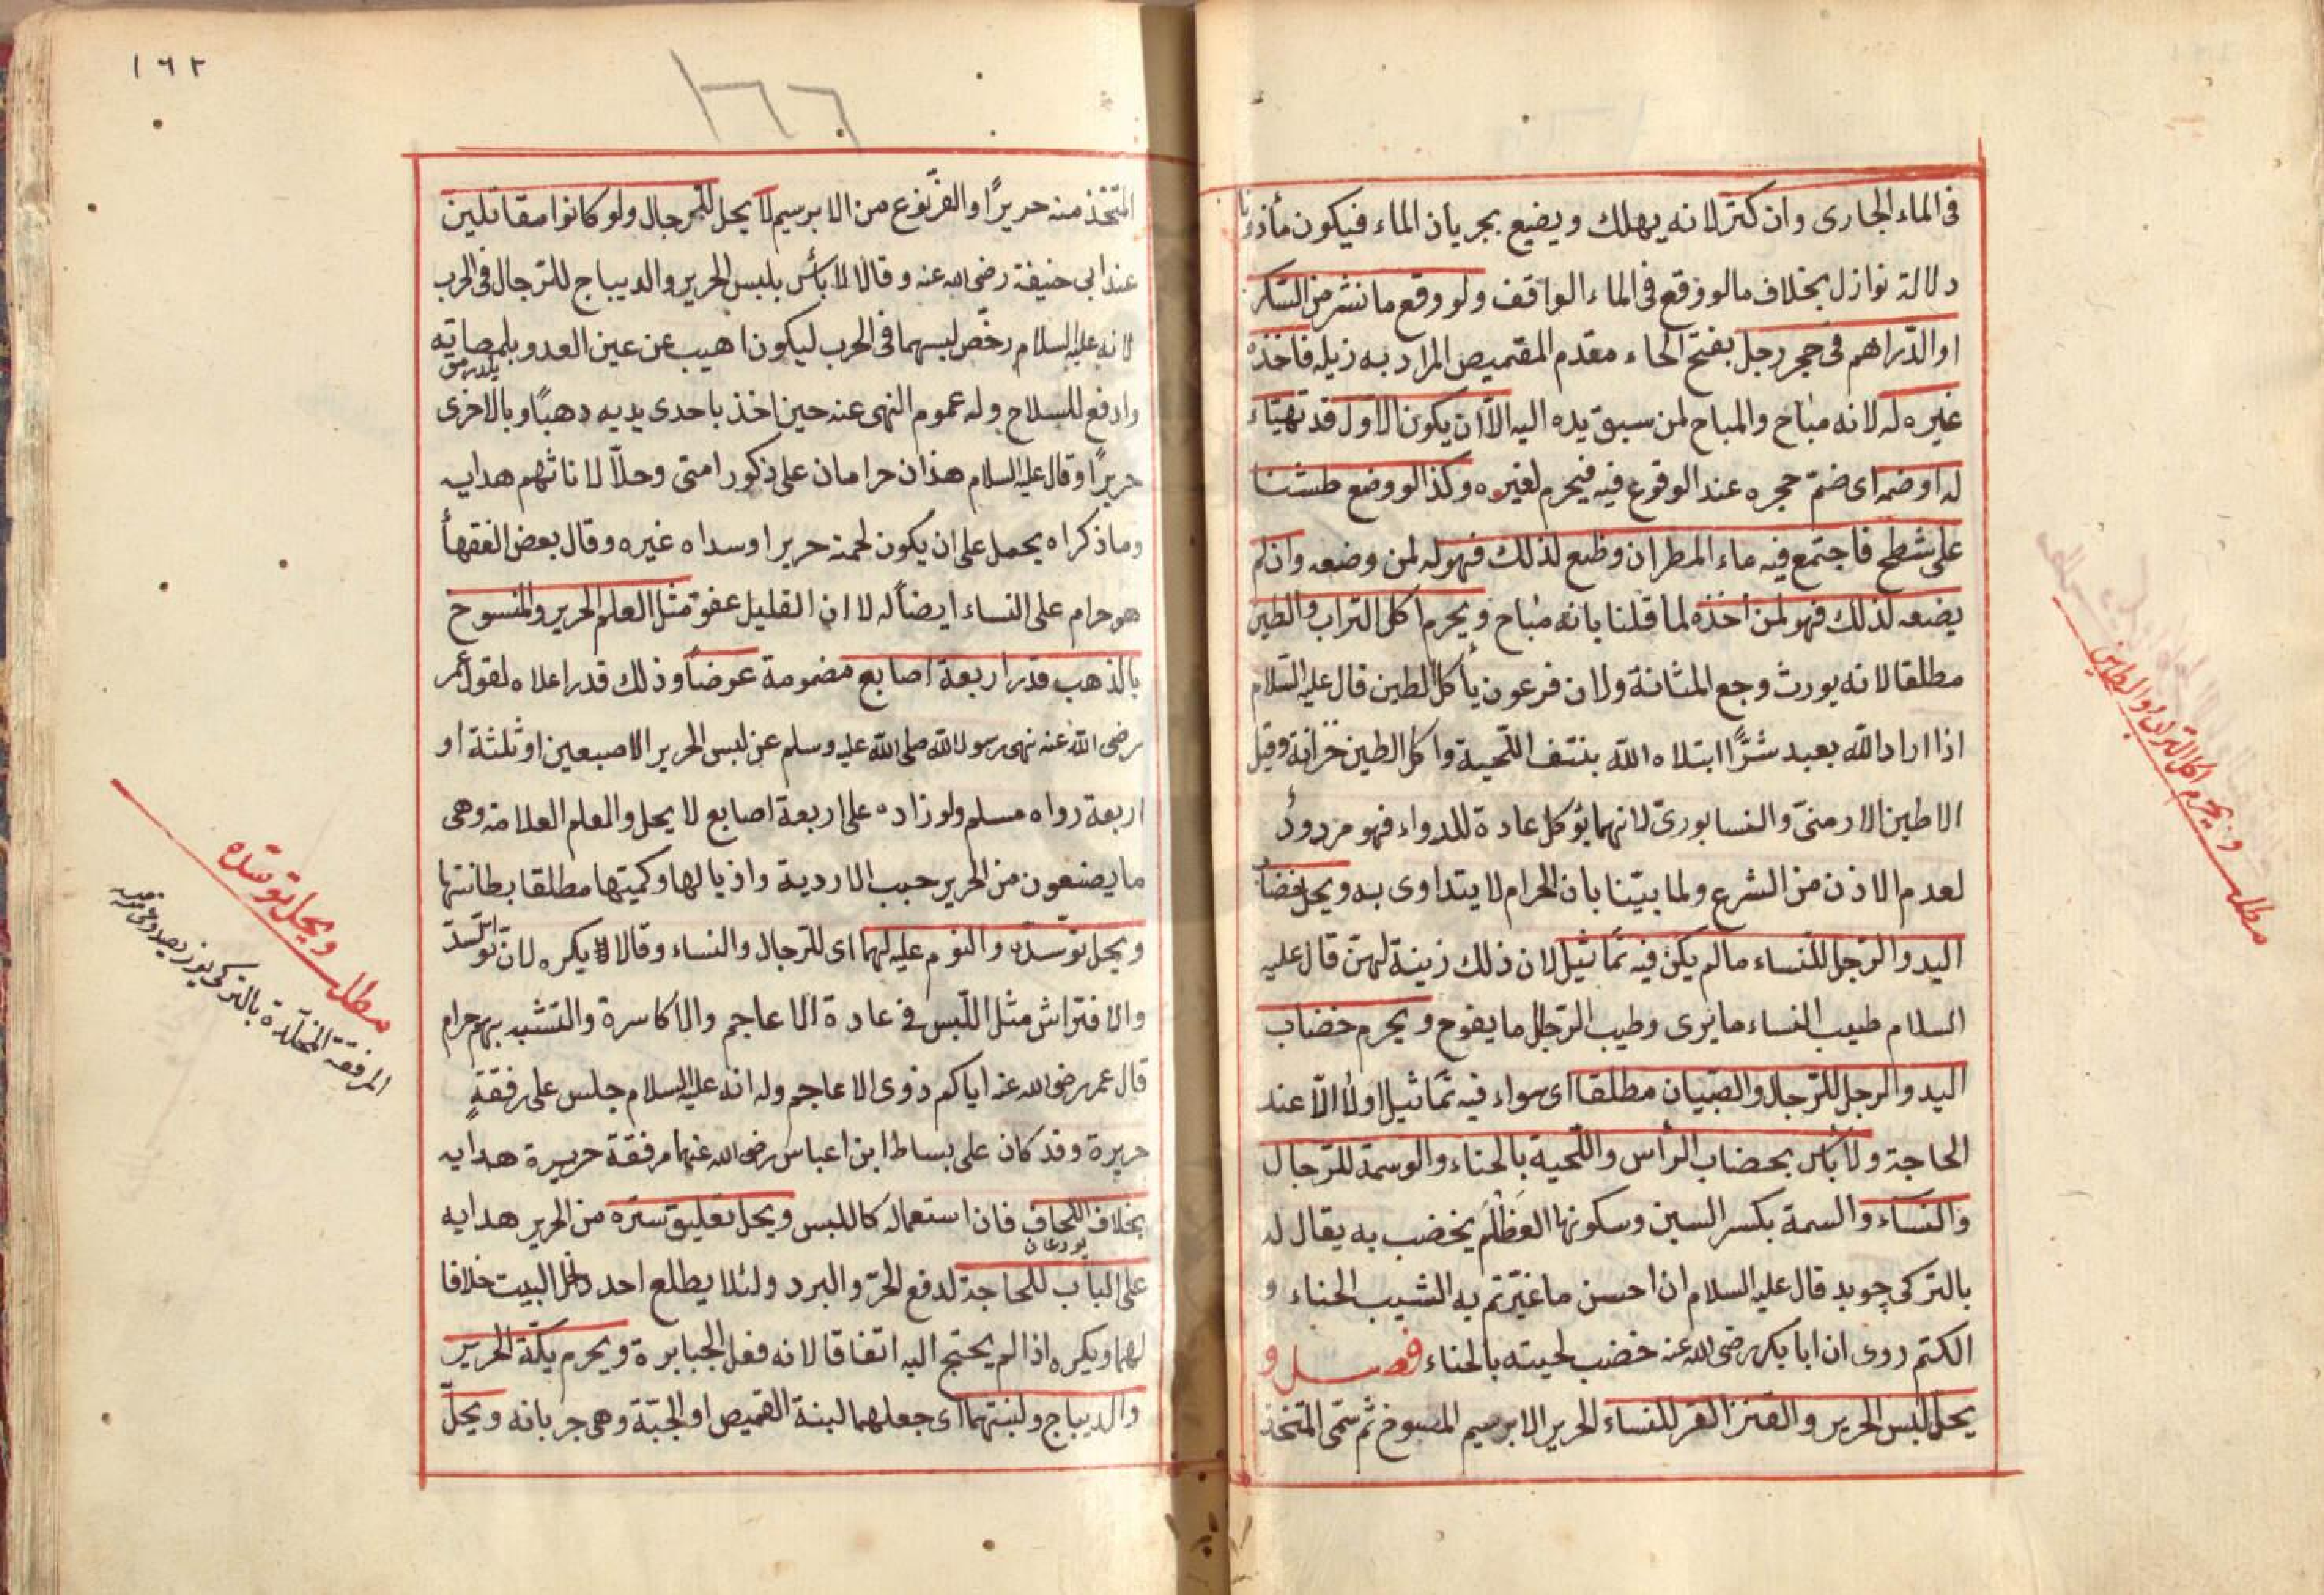 فى الماء الجارى وان كثر لانه يهلك ويضيع بجريان الماء فيكون مأذونا
دلالة نوازل بخلاف مالو وقع فى الماء الواقف ولو وقع ما نثر من السكر
او الدّراهم فى حجر رجل بفتح الحاء مقدم القميص المراد به ذيله فاخذه
غيره له لانه مباح والمباح لمن سبق يده اليه الّا ان يكون الاول قد تهيّاء
له او ضمه اى ضمّ حجره عند الوقوع فيه فيحرم لغيره وكذا لو وضع طشتا
على سطح فاجتمع فيه ماء المطر ان وضع لذلك فهو له لمن وضعه وان لم
يضعه لذلك فهو لمن اخذه لما قلنا بانه مباح ويحرم اكل التراب والطين
مطلقا لانه يورث وجع المثانة ولان فرعون يأكل الطين قال عليه السّلام
اذا اراد اللّه بعبد شرًّا ابتلاه اللّه بنتف اللّحية واكل الطين خزانة وقيل
الا طين الارمنىّ والنسابورىّ لانهما يؤكل عادة للدواء فهو مردودٌ
لعدم الاذن من الشرع ولما بيّنا بان الحرام لا يتداوى به ويحل خضاب
اليد والرّجل للنساء مالم يكن فيه تماثيل لان ذلك زينة لهنّ قال عليه
السلام طيب النساء ما يرى وطيب الرّجال ما يفوح ويحرم خضاب
اليد والرجل للرّجال والصّبيان مطلقا اى سواء فيه تماثيل اولا الّا عند
الحاجة ولا بأس بخضاب الرأس واللّحية بالحناء والوسمة للرّجال
والنساء والسمة بكسر السين وسكونها العظلم يخضب به يقال له
بالتركى چويد قال عليه السلام ان احسن ما غيّرتم به الشيب الحناء و
الكتم روى ان ابا بكر رضى اللّه عنه خضب لحيته بالحناء فصل و
يحل لبس الحرير والقز القز للنساء الحرير الابرسيم المصبوغ ثم سمّى المتّخذ
مطلب ويحرم اكل التراب والطين
١٦٢
١٦٦
المتّخذ منه حريرًا والقزّ نوع من الابرسيم لا يحل للرجال ولو كانوا مقاتلين
عند ابى حنيفة رضى اللّه عنه وقالا لا بأس بلبس الحرير والديباج للرّجال فى الحرب
لانه عليه السلام رخّص لبسهما فى الحرب ليكون اهيب عن عين العدو
وادفع للسلاح وله عموم النهى عنه حين اخذ باحدى يديه ذهبًا وبالاخرى
حريرًا وقال عليه السلام هذان حرامان على ذكور امتى وحلّا لاناثهم هدايه
وما ذكراه يحمل على ان يكون لحمته حريرا وسداه غيره وقال بعض الفقهأ
هو حرام على النساء ايضاً له لا ان القليل عفو مثل العلم الحرير والمنسوج
بالذهب قدر اربعة اصابع مضمومة عرضاً وذلك قدر اعلاه لقول عمر
رضى اللّه عنه نهى رسول اللّه صلى اللّه عليه وسلم عن لبس الحرير الا صبعين او ثلثة او
اربعة رواه مسلم ولو زاده على اربعة اصابع لا يحل والعلم العلامة وهى
ما يضعون من الحرير حبب الاردية واذيالها وكميتها مطلقا بطانتها
ويحل توسّده والنوم عليه لهما اى للرّجال والنساء وقالا يكره لان توسّد
والافتراش مثل اللّبس فى عادة الاعاجم والاكاسرة والتشبه بهم حرام
قال عمر رضى اللّه عنه اياكم ذوى الاعاجم وله انه عليه السلام جلس على رفقةٍ
حريرة وقد كان على بساط ابن اعباس رضى اللّه عنهما مرفقة حريرة هدايه
بخلاف اللّحاف فان استعماله كاللبس ويحل تعليق ستره من الحرير هدايه
يورغان
على الباب للحاجة لدفع الحرّ والبرد ولئلا يطلع احد داخل البيت خلافا
لهما ويكره اذا لم يحتج اليه اتفاقا لانه فعل الجبابرة ويحرم تكّة الحرير
والديباج ولبنتهما اى جعلهما لبنة القميص او الجبّة وهى جربانه ويحلّ
مطلب ويحل توسّده
المرفقة المخدّة بالتركى